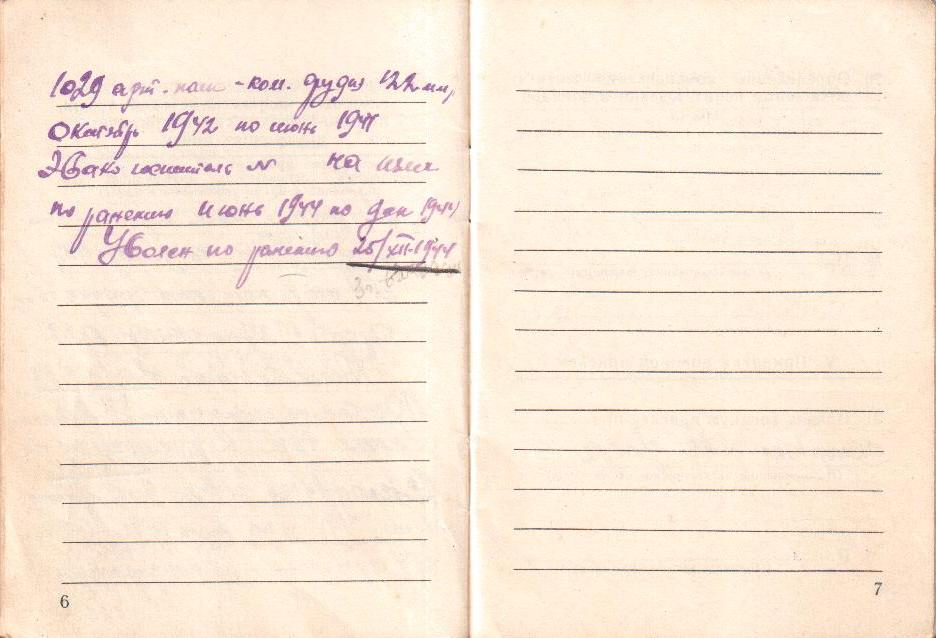 1029 арт. полк - ком. орудия 122 мм,
Октябрь 1942 по июнь 1944
Эвако госпиталь №
по ранению июнь 1944 по дек 1944
Уволен по ранению 25/XII-1944
6
7